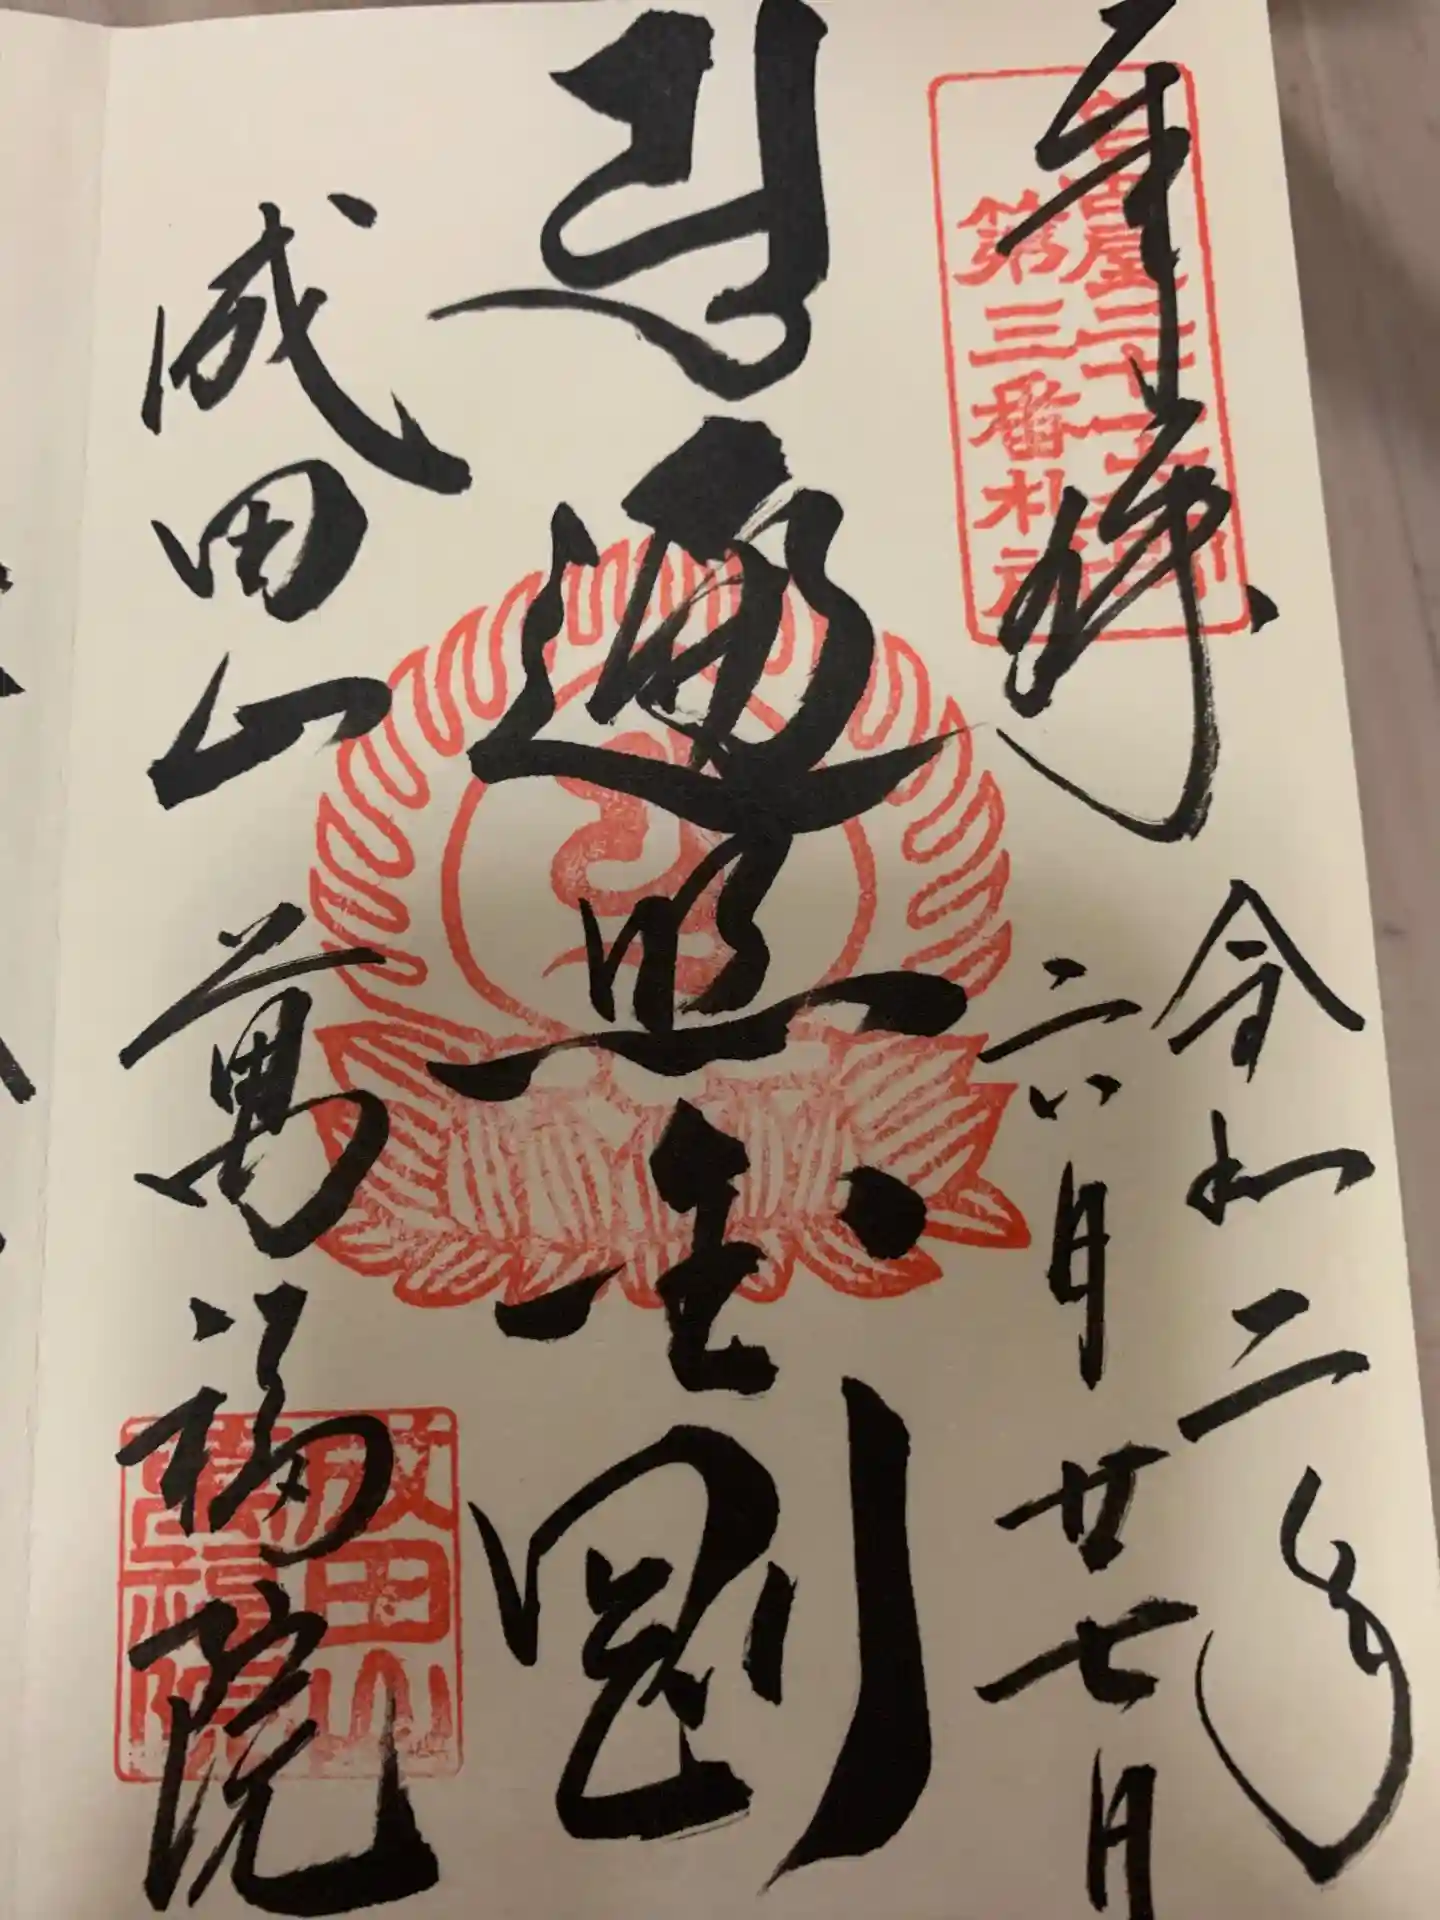 奉拝
名古屋二十一大師
第三番札所
令和二年
六月廿七日
遍照金剛
成田山 萬福院
成田山
萬福院